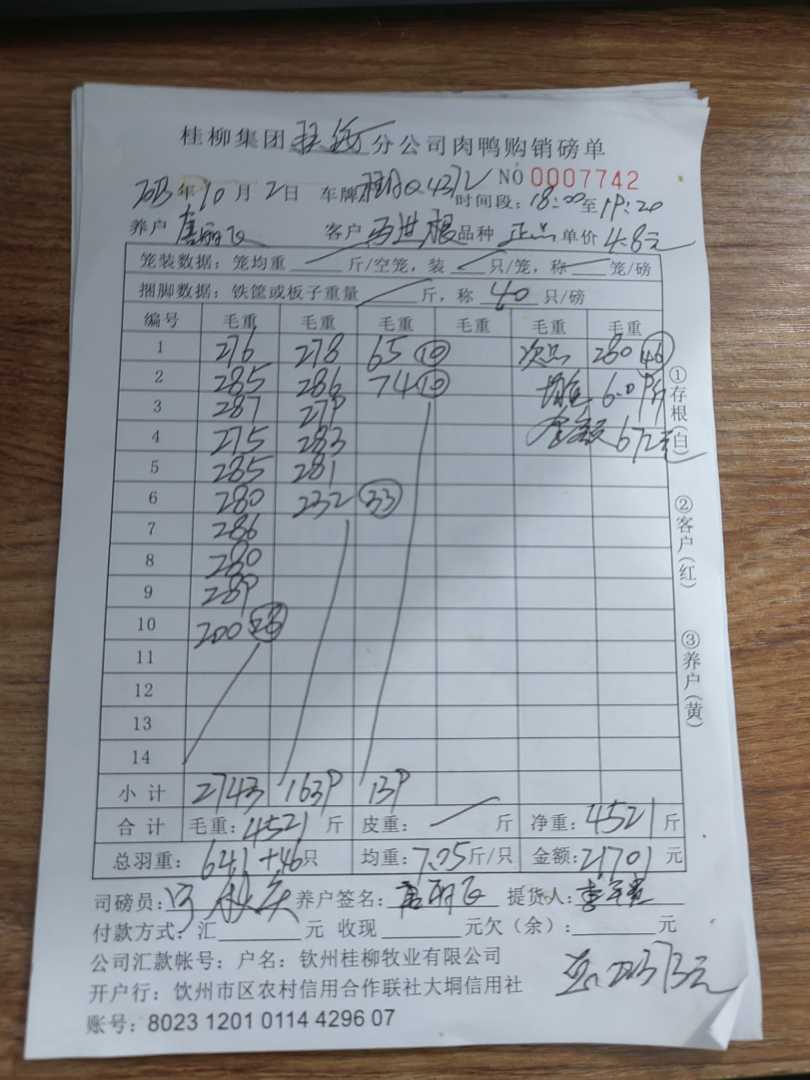 桂柳集团 分公司肉鸭购销磅单
NO 0007742
2023年10月2日 车牌 时间段：18:00至19:20
养户 唐丽飞 客户 马世根 品种 正品 单价 4.8元
笼装数据：笼均重 斤/空笼，装 只/笼，称 笼/磅
捆脚数据：铁筐或板子重量 斤，称 40 只/磅
编号 毛重 毛重 毛重 毛重 毛重 毛重
1 276 278 65 ⑩ 次品 280 46
2 285 286 74 ⑩ 均重 6.09斤
3 287 279 金额 672元
4 275 283
5 285 281
6 280 232 33
7 286
8 280
9 289
10 200 28
11
12
13
14
小计 2743 1639 139
合计 毛重：4521 斤 皮重： 斤 净重：4521 斤
总羽重：641+46只 均重：7.05斤/只 金额：21701元
司磅员： 养户签名：唐丽飞 提货人：
付款方式：汇 元 收现 元欠（余）： 元
公司汇款帐号：户名：钦州桂柳牧业有限公司
开户行：钦州市区农村信用合作联社大垌信用社
22373元
账号：8023 1201 0114 4296 07
①存根(白)
②客户(红)
③养户(黄)